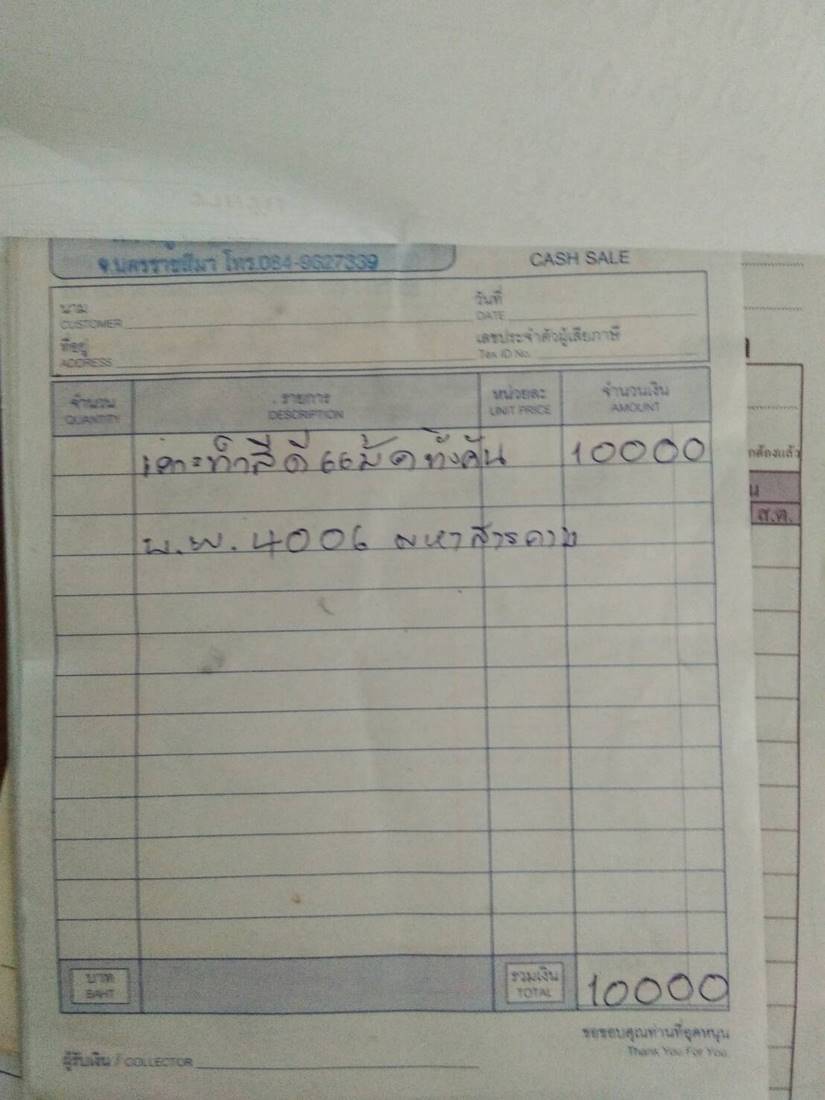 จ.นครราชสีมา โทร.084-9627339
CASH SALE
นาม
CUSTOMER
วันที่
DATE
ที่อยู่
ADDRESS
เลขประจำตัวผู้เสียภาษี
Tax ID No.
จำนวน
QUANTITY
รายการ
DESCRIPTION
หน่วยละ
UNIT PRICE
จำนวนเงิน
AMOUNT
เคาะทำสี ดี 66 มัด ทั้งคัน 10000
น.พ. 4006 มหาสารคาม
บาท
BAHT
รวมเงิน
TOTAL
10000
ขอขอบคุณท่านที่อุดหนุน
Thank You For You
ผู้รับเงิน / COLLECTOR
กต้องแล้ว
น
ส.ต.